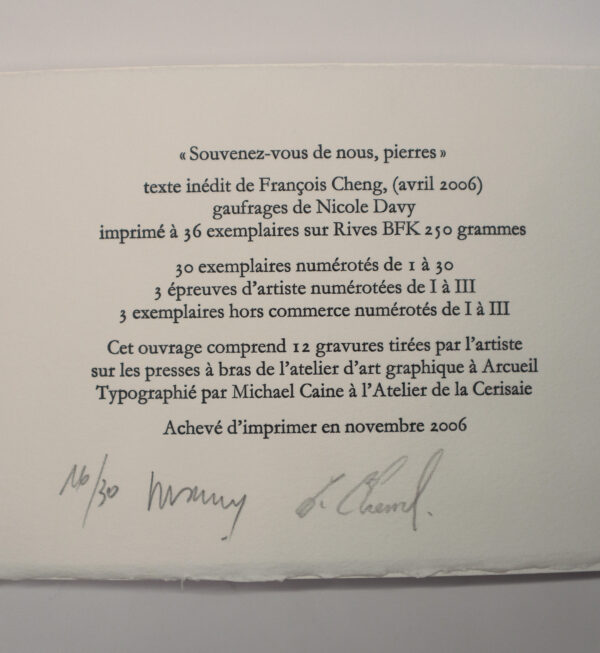 « Souvenez-vous de nous, pierres »
texte inédit de François Cheng, (avril 2006)
gaufrages de Nicole Davy
imprimé à 36 exemplaires sur Rives BFK 250 grammes
30 exemplaires numérotés de 1 à 30
3 épreuves d'artiste numérotées de I à III
3 exemplaires hors commerce numérotés de I à III
Cet ouvrage comprend 12 gravures tirées par l'artiste
sur les presses à bras de l'atelier d'art graphique à Arcueil
Typographié par Michael Caine à l'Atelier de la Cerisaie
Achevé d'imprimer en novembre 2006
16/30